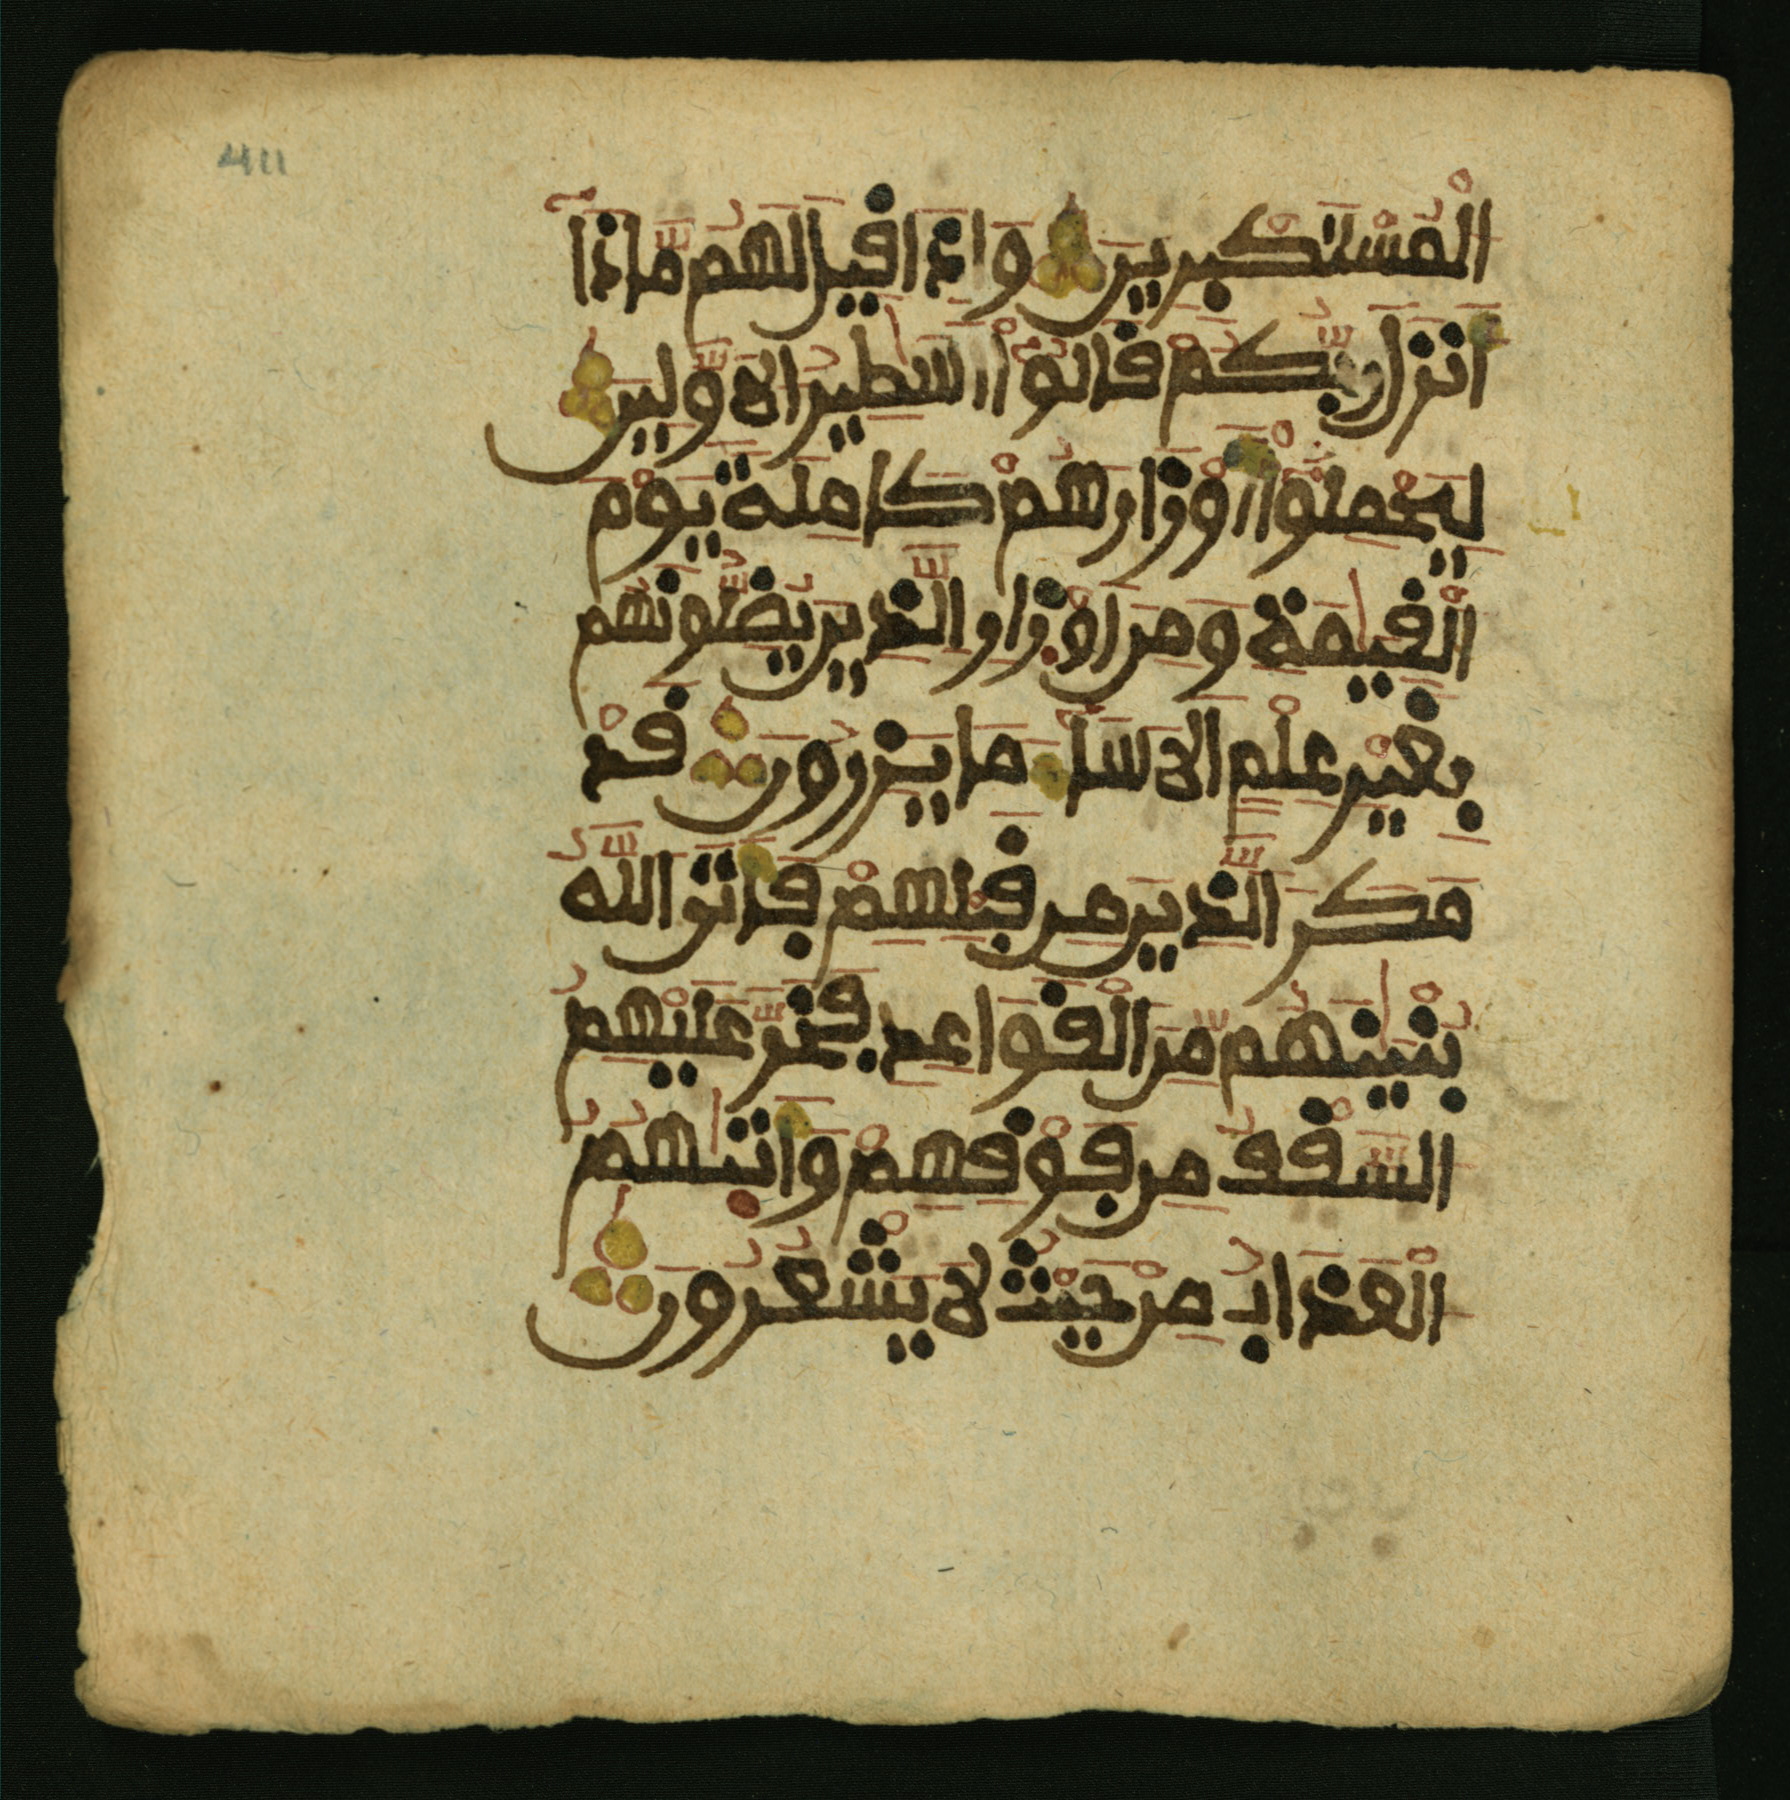 411
الْمُسْتَكْبِرِينَ وَإِذَا قِيلَ لَهُم مَّاذَا
أَنزَلَ رَبُّكُمْ قَالُوا أَسَطِيرُ الْأَوَّلِينَ
لِيَحْمِلُوا أَوْزَارَهُمْ كَامِلَةً يَوْمَ
الْقِيَمَةِ وَمِنْ أَوْزَارِ الَّذِينَ يُضِلُّونَهُم
بِغَيْرِ عِلْمٍ أَلَا سَاءَ مَا يَزِرُونَ قَدْ
مَكَرَ الَّذِينَ مِن قَبْلِهِمْ فَأَتَى اللَّهُ
بُنْيَنَهُم مِّنَ الْقَوَاعِدِ فَخَرَّ عَلَيْهِمُ
السَّقْفُ مِن فَوْقِهِمْ وَأَتَىهُمُ
الْعَذَابُ مِنْ حَيْثُ لَا يَشْعُرُونَ